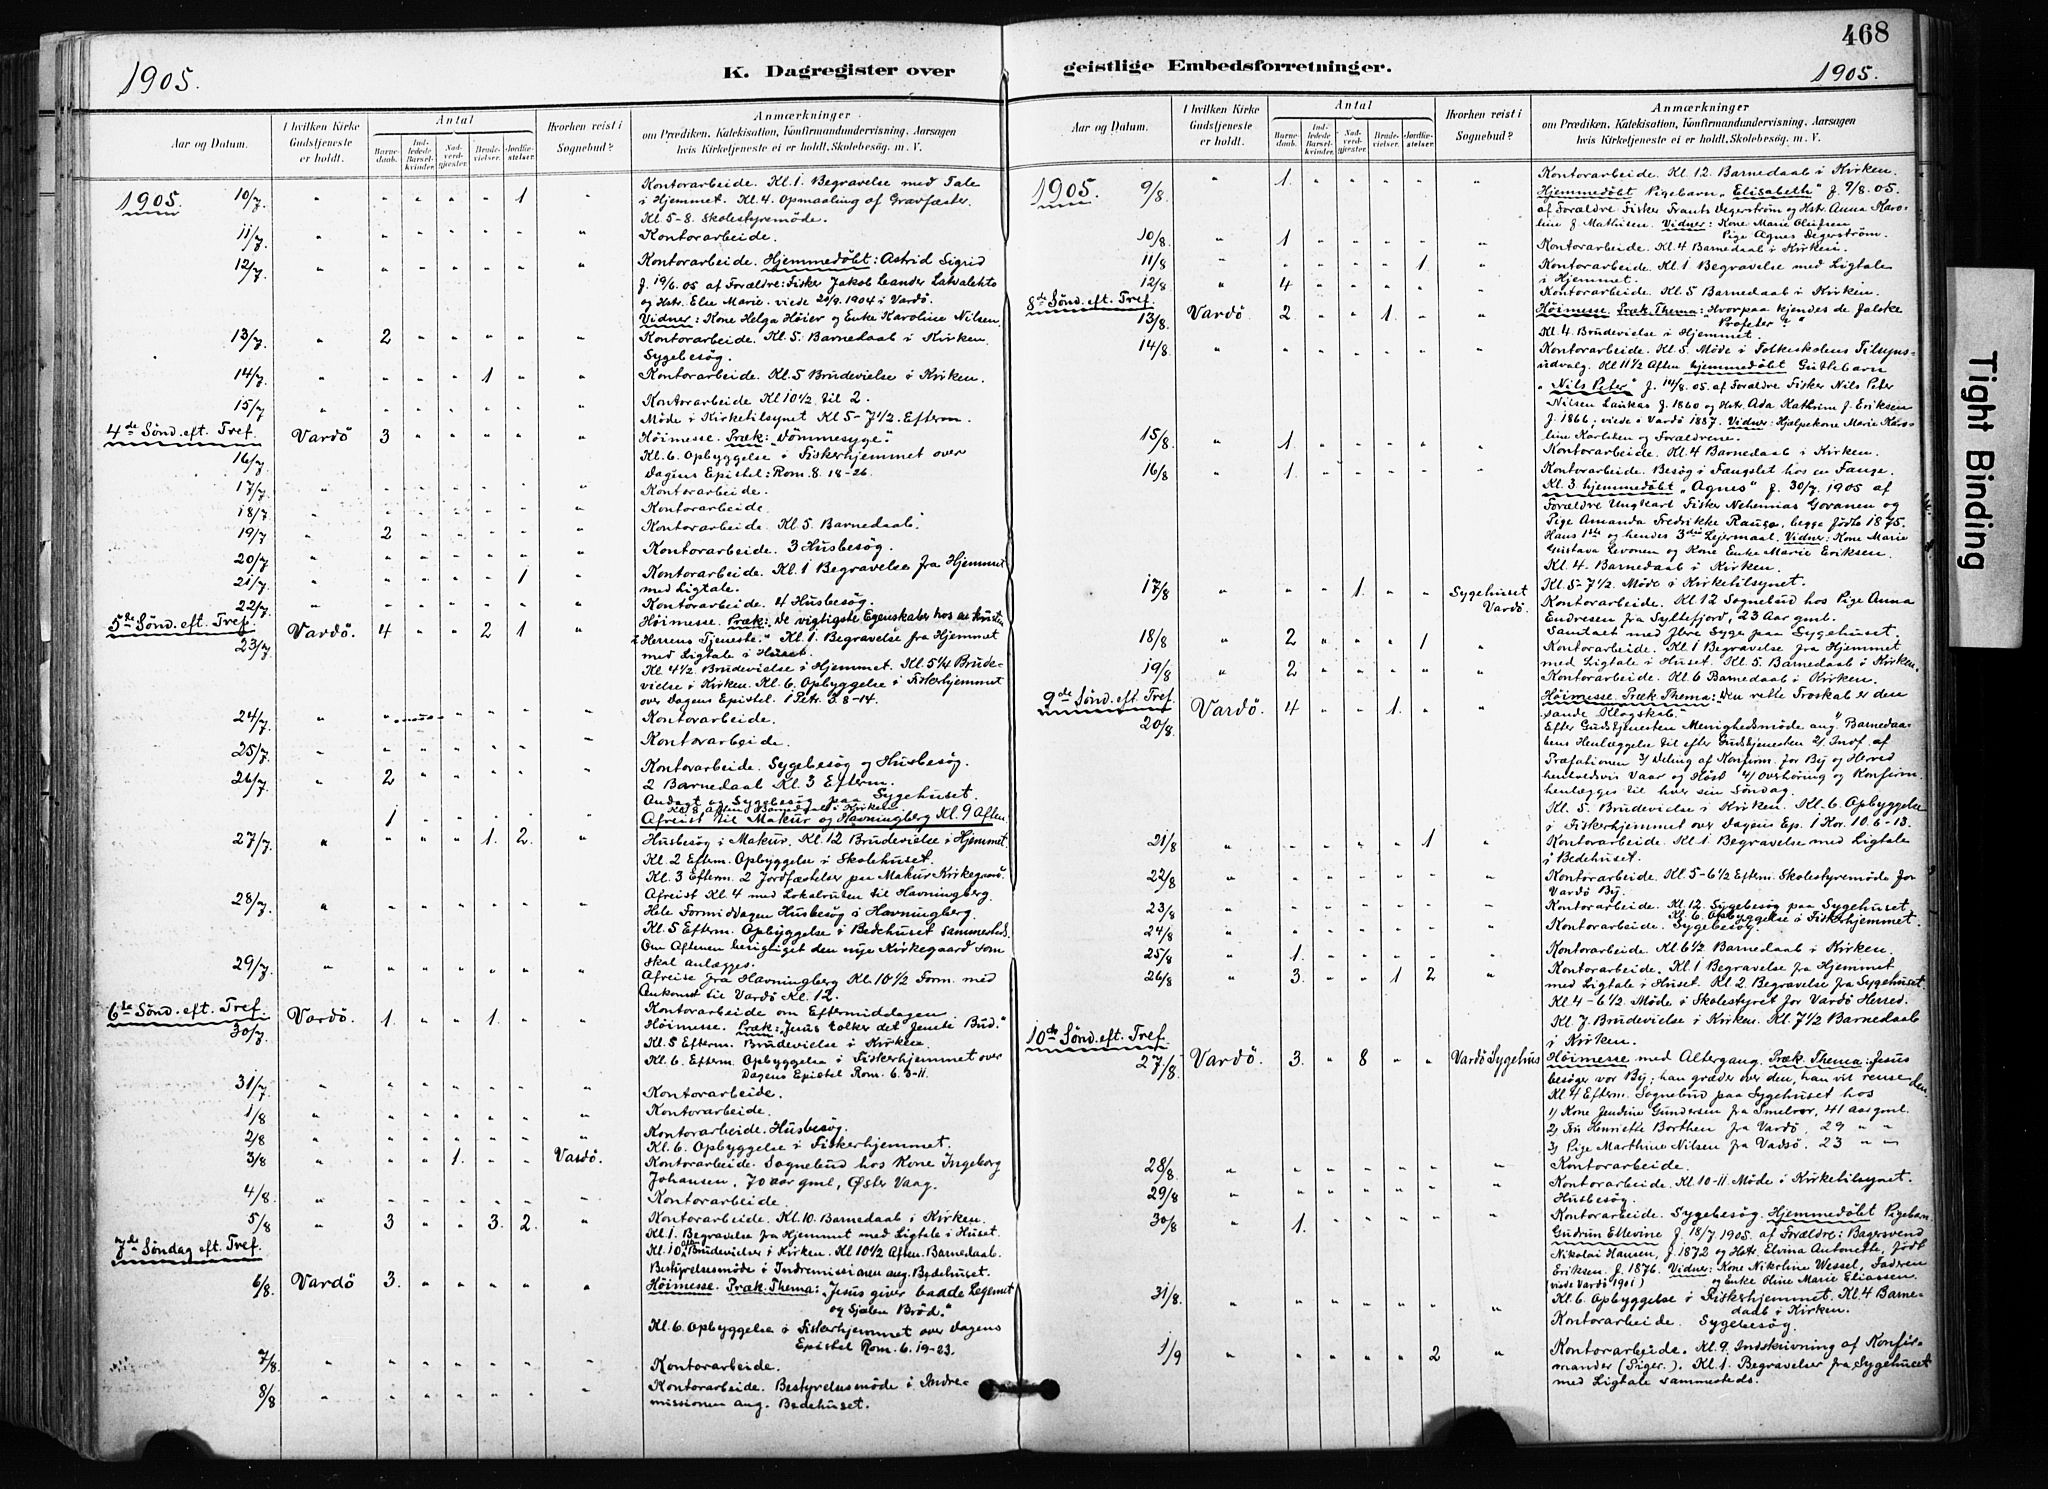 468
1905.
K. Dagregister over
geistlige Embedsforretninger.
1905.
Aar og Datum.
I hvilken Kirke Gudstjeneste er holdt.
Antal
Barnedaab.
Indledede Barselkvinder.
Nadverdgjester.
Brudevielser.
Jordfæstelser.
Hvorhen reist i Sognebud?
Anmærkninger
om Prædiken, Katekisation, Konfirmandundervisning, Aarsagen
hvis Kirketjeneste ei er holdt, Skolebesøg. m. V.
1905. 10/7 " " " " " 1 " Kontorarbeide. Kl. 1. Begravelse med Tale
i Hjemmet. Kl. 4. Opmaaling af Gravfæster.
Kl. 5-8. Skolestyremöde.
11/7 " " " " " " " Kontorarbeide.
12/7 " " " " " " " Kontorarbeide. Hjemmedöbt: Astrid Sigrid
f. 19/6. 05 af Forældre: Fisker Jakob Leander Latvalehto
og Hstr. Else Marie. viede 20/9. 1904 i Vardö.
Vidner: Kone Helga Höier og Enke Karoline Nilsen.
13/7 " 2 " " " " " Kontorarbeide. Kl. 5. Barnedaab i Kirken.
Sygebesög.
14/7 " " " " 1 " " Kontorarbeide. Kl. 5 Brudevielse i Kirken.
15/7 " " " " " " " Kontorarbeide Kl 10 1/2 til 2.
Möde i Kirketilsynet Kl 5-7 1/2. Efterm.
4de Sönd. eft. Tref.
16/7 Vardö 3 " " " " " Höimesse. Præk: "Dömmesyge".
Kl. 6. Opbyggelse i Fiskerhjemmet over
Dagens Epistel: Rom. 8. 18-26.
17/7 " " " " " " " Kontorarbeide.
18/7 " " " " " " " Kontorarbeide.
19/7 " 2 " " " " " Kontorarbeide. Kl 5. Barnedaab.
20/7 " " " " " " " Kontorarbeide. 3 Husbesög.
21/7 " " " " " 1 " Kontorarbeide. Kl. 1 Begravelse fra Hjemmet
med Ligtale.
22/7 " " " " " " " Kontorarbeide. 4 Husbesög.
5te Sönd. eft. Tref.
23/7 Vardö. 4 " " 2 1 " Höimesse. Præk: "De vigtigste Egenskaber hos
Herrens Tjeneste." Kl. 1. Begravelse fra Hjemmet
med Ligtale i Huset.
Kl 4 1/2 Brudevielse i Hjemmet. Kl. 5 1/4 Brude-
vielse i Kirken. Kl. 6. Opbyggelse i Fiskerhjemmet
over Dagens Epistel. 1 Petr. 3. 8-14.
24/7 " " " " " " " Kontorarbeide.
25/7 " " " " " " " Kontorarbeide.
26/7 " 2 " " " " " Kontorarbeide. Sygebesög og Husbesög.
2 Barnedaab Kl. 3 Efterm.
Andagt og Sygebesög paa Sygehuset.
1 " " " " " Kl. 8 Aften Barnedaab i Kirken
Afreist til Makur og Havningberg Kl. 9 Aften.
27/7 " " " " 1. 2. " Husbesög i Makur. Kl. 12 Brudevielse i Hjemmet.
Kl. 2 Efterm. Opbyggelse i Skolehuset.
Kl. 3 Efterm. 2 Jordfæstelser paa Makur Kirkegaard.
Afreist Kl. 4 med Lokalruten til Havningberg.
28/7 " " " " " " " Hele Formiddagen Husbesög i Havningberg.
Kl. 5 Efterm. Opbyggelse i Bedehuset sammesteds.
Om Aftenen besigtiget den nye Kirkegaard som
skal anlægges.
29/7 " " " " " " " Afreise fra Havningberg Kl. 10 1/2 Form. med
Ankomst til Vardö Kl. 12.
Kontorarbeide om Eftermiddagen.
6te Sönd. eft. Tref.
30/7 Vardö. 1. " " 1. " " Höimesse. Præk: "Jesus tolker det femte Bud."
Kl. 5 Efterm. Brudevielse i Kirken.
Kl. 6. Efterm. Opbyggelse i Fiskerhjemmet over
Dagens Epistel Rom. 6. 3-11.
31/7 " " " " " " " Kontorarbeide.
1/8 " " " " " " " Kontorarbeide.
2/8 " " " " " " " Kontorarbeide. Husbesög.
Kl. 6. Opbyggelse i Fiskerhjemmet.
3/8 " " " 1. " " Vardö. Kontorarbeide. Sognebud hos Kone Ingeborg
Johansen. 70 aar gml., Öster Vaag.
4/8 " " " " " " " Kontorarbeide.
5/8 " 3 " " 3. 2. " Kontorarbeide. Kl. 10. Barnedaab i Kirken.
Kl. 1. Begravelse fra Hjemmet med Ligtale i Huset.
Kl. 10 Brudevielser i Kirken. Kl 10 1/2 Aften. Barnedaab.
Bestyrelsesmöde i Indremissionen ang. Bedehuset.
7de Söndag eft. Tref.
6/8 Vardö 3. " " " " " Höimesse. Præk. Thema: "Jesus giver baade Legemet
og Sjælen Bröd."
Kl. 6. Opbyggelse i Fiskerhjemmet over Dagens
Epistel Rom. 6. 19-23.
7/8 " " " " " " " Kontorarbeide.
8/8 " " " " " " " Kontorarbeide. Bestyrelsesmöde i Indre-
missionen ang. Bedehuset.
Aar og Datum.
I hvilken Kirke Gudstjeneste er holdt.
Antal
Barnedaab.
Indledede Barselkvinder.
Nadverdgjester.
Brudevielser.
Jordfæstelser.
Hvorhen reist i Sognebud?
Anmærkninger
om Prædiken, Katekisation, Konfirmandundervisning, Aarsagen
hvis Kirketjeneste ei er holdt, Skolebesøg. m. V.
1905. 9/8 " 1. " " " " " Kontorarbeide. Kl. 12. Barnedaab i Kirken.
Hjemmedöbt Pigebarn "Elisabeth" f. 9/8. 05.
af Forældre Fisker Frants Degerström og Hstr. Anna Karo-
line f. Mathisen. Vidner: Kone Marie Olufsen
Pige Agnes Degerström.
10/8 " 1 " " " " " Kontorarbeide. Kl. 4 Barnedaab i Kirken.
11/8 " " " " " 1. " Kontorarbeide. Kl. 1 Begravelse med Ligtale
i Hjemmet.
12/8 " 4 " " " " " Kontorarbeide. Kl. 5 Barnedaab i Kirken.
8de Sönd. eft. Tref.
13/8 Vardö 2 " " 1. " " Höimesse. Præk. Thema: "Hvorpaa kjendes de falske
Profeter?"
Kl. 4. Brudevielse i Hjemmet.
14/8 " " " " " " " Kontorarbeide. Kl. 5. Möde i Folkeskolens Tilsyns-
udvalg. Kl 11 1/2 Aften hjemmedöbt Guttebarn
"Nils Peter" f. 14/8. 05. af Forældre Fisker Nils Peter
Nilsen Laukas f. 1860 og Hstr. Ada Kathrine f. Eriksen
f. 1866; viede i Vardö 1887. Vidner: Hjælpekone Marie Karo-
line Karlsen og Forældrene.
15/8 " 1. " " " " " Kontorarbeide. Kl. 4 Barnedaab i Kirken.
16/8 " 1. " " " " " Kontorarbeide. Besög i Fængslet hos en Fange.
Kl. 3 hjemmedöbt "Agnes" f. 30/7. 1905 af
Forældre Ungkarl Fisker Nehemias Govanen og
Pige Amanda Fredrikke Rausa, begge födte 1875.
Hans 1ste og hendes 3die Lejermaal. Vidner: Kone Marie
Gustava Levonen og Kone Enke Marie Eriksen.
Kl. 4. Barnedaab i Kirken.
Kl. 5-7 1/2. Möde i Kirketilsynet.
17/8 " " " 1. " " Sygehuset Vardö. Kontorarbeide. Kl. 12 Sognebud hos Pige Anna
Endresen fra Syltefjord, 23 Aar gml.
Samtalt med flere Syge paa Sygehuset.
18/8 " 2 " " " 1 " Kontorarbeide. Kl 1 Begravelse fra Hjemmet
med Ligtale i Huset. Kl. 5. Barnedaab i Kirken.
19/8 " 2 " " " " " Kontorarbeide. Kl. 6 Barnedaab i Kirken.
9de Sönd. eft. Tref.
20/8 Vardö. 4 " " 1. " " Höimesse. Præk. Thema: "Den rette Troskab er den
sande Klogskab."
Efter Gudstjenesten Menighedsmöde ang. 1/ Barnedaa-
bens Henlæggelse til efter Gudstjenesten 2/ Indf. af
Præfationen 3/ Deling af Konfirm. for By og Herred
henholdsvis Vaar og Höst 4/ Overhöring og Konfirm.
henlægges til hver sin Söndag.
Kl. 5. Brudevielse i Kirken. Kl. 6. Opbyggelse
i Fiskerhjemmet over Dagens Ep. 1 Kor. 10. 6-13.
21/8 " " " " " 1 " Kontorarbeide. Kl. 1. Begravelse med Ligtale
i Bedehuset.
22/8 " " " " " " " Kontorarbeide. Kl. 5-6 1/2 Efterm. Skolestyremöde for
Vardö By.
23/8 " " " " " " " Kontorarbeide. Kl. 12. Sygebesög paa Sygehuset
Kl. 6. Opbyggelse i Fiskerhjemmet.
24/8 " " " " " " " Kontorarbeide. Sygebesög.
25/8 " 1. " " " " " Kontorarbeide. Kl. 6 1/2 Barnedaab i Kirken.
26/8 " 3. " " 1 2 " Kontorarbeide. Kl. 1 Begravelse fra Hjemmet
med Ligtale i Huset. Kl 2. Begravelse fra Sygehuset.
Kl. 4-6 1/2. Möde i Skolestyret for Vardö Herred.
Kl. 7. Brudevielse i Kirken. Kl. 7 1/2 Barnedaab
i Kirken.
10de Sönd. eft. Tref.
27/8 Vardö. 3. " 8 " " Vardö Sygehus Höimesse med Altergang. Præk. Thema: Jesus
besöger vor By; han græder over den, han vil rense den.
Kl. 4 Efterm. Sognebud paa Sygehuset hos
1) Kone Jendine Gundersen fra Smelror, 41 aar gml.
2) Frk Henriette Borthen fra Vardö, 29 " "
3) Pige Marthine Nilsen fra Vadsö. 23 " "
28/8 " " " " " " " Kontorarbeide.
29/8 " " " " " " " Kontorarbeide. Kl 10-11. Möde i Kirketilsynet.
Husbesög.
30/8 " 1. " " " " " Kontorarbeide. Sygebesög. Hjemmedöbt Pigebarn
Gudrun Ellvine f. 18/7 1905. af Forældre: Bagersvend
Nikolai Hansen, f. 1872 og Hstr. Elvina Antonette, födt
Eriksen. f. 1876. Vidner: Kone Nikoline Wessel, Faderen
(viede Vardö 1901) og Enke Oline Marie Eliassen.
Kl. 6. Opbyggelse i Fiskerhjemmet. Kl. 4 Barne-
daab i Kirken.
31/8. " " " " " " " Kontorarbeide. Sygebesög.
1/9 " " " " " 2 " Kontorarbeide. Kl. 9. Indskrivning af Konfir-
mander (Piger.). Kl. 1. Begravelser fra Sygehuset
med Ligtale sammesteds.
Tight Binding